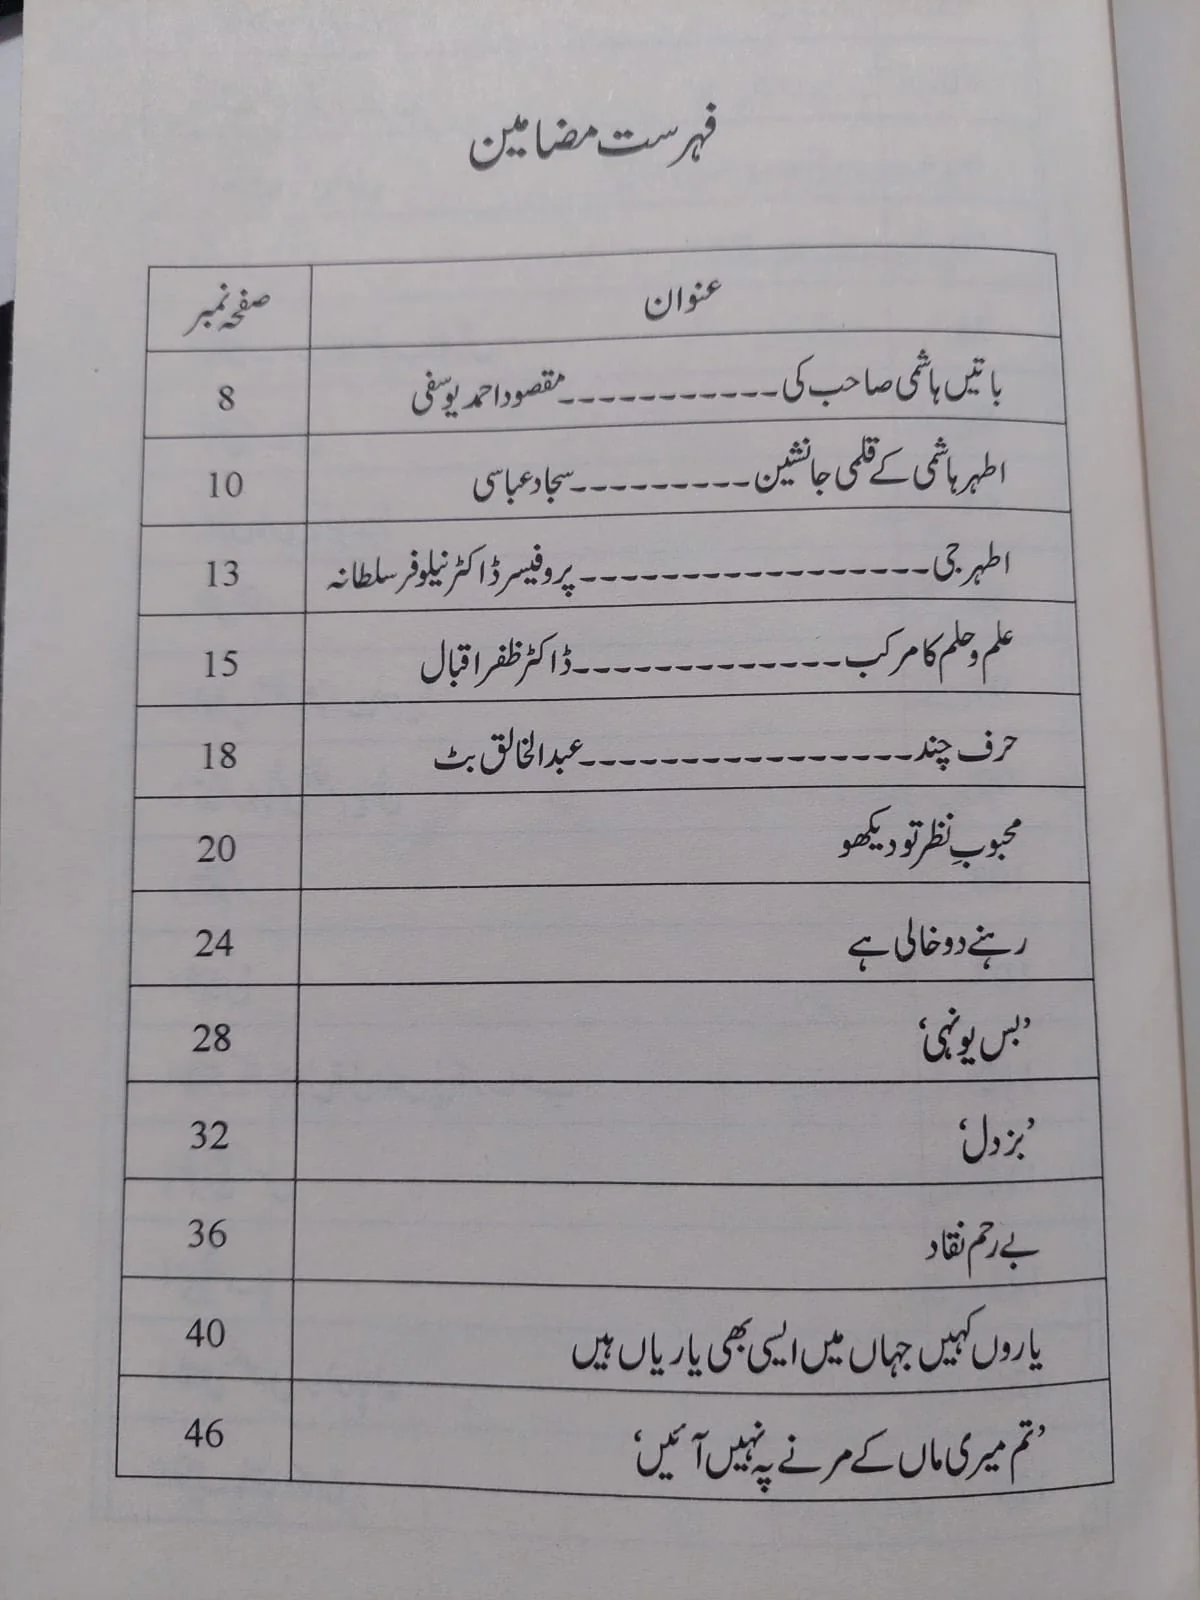 فہرست مضامین
عنوان صفحہ نمبر
باتیں ہاشمی صاحب کی-----------مقصود احمد یوسفی 8
اطہر ہاشمی کے قلمی جانشین---------سجاد عباسی 10
اطہر جی-----------------پروفیسر ڈاکٹر نیلوفر سلطانہ 13
علم و حلم کا مرکب-------------ڈاکٹر ظفر اقبال 15
حرف چند----------------عبدالخالق بٹ 18
محبوبِ نظر تو دیکھو 20
رہنے دو خالی ہے 24
’بس یونہی‘ 28
’بزدل‘ 32
بے رحم نقاد 36
یاروں کہیں جہاں میں ایسی بھی یاریاں ہیں 40
’تم میری ماں کے مرنے پہ نہیں آئیں‘ 46